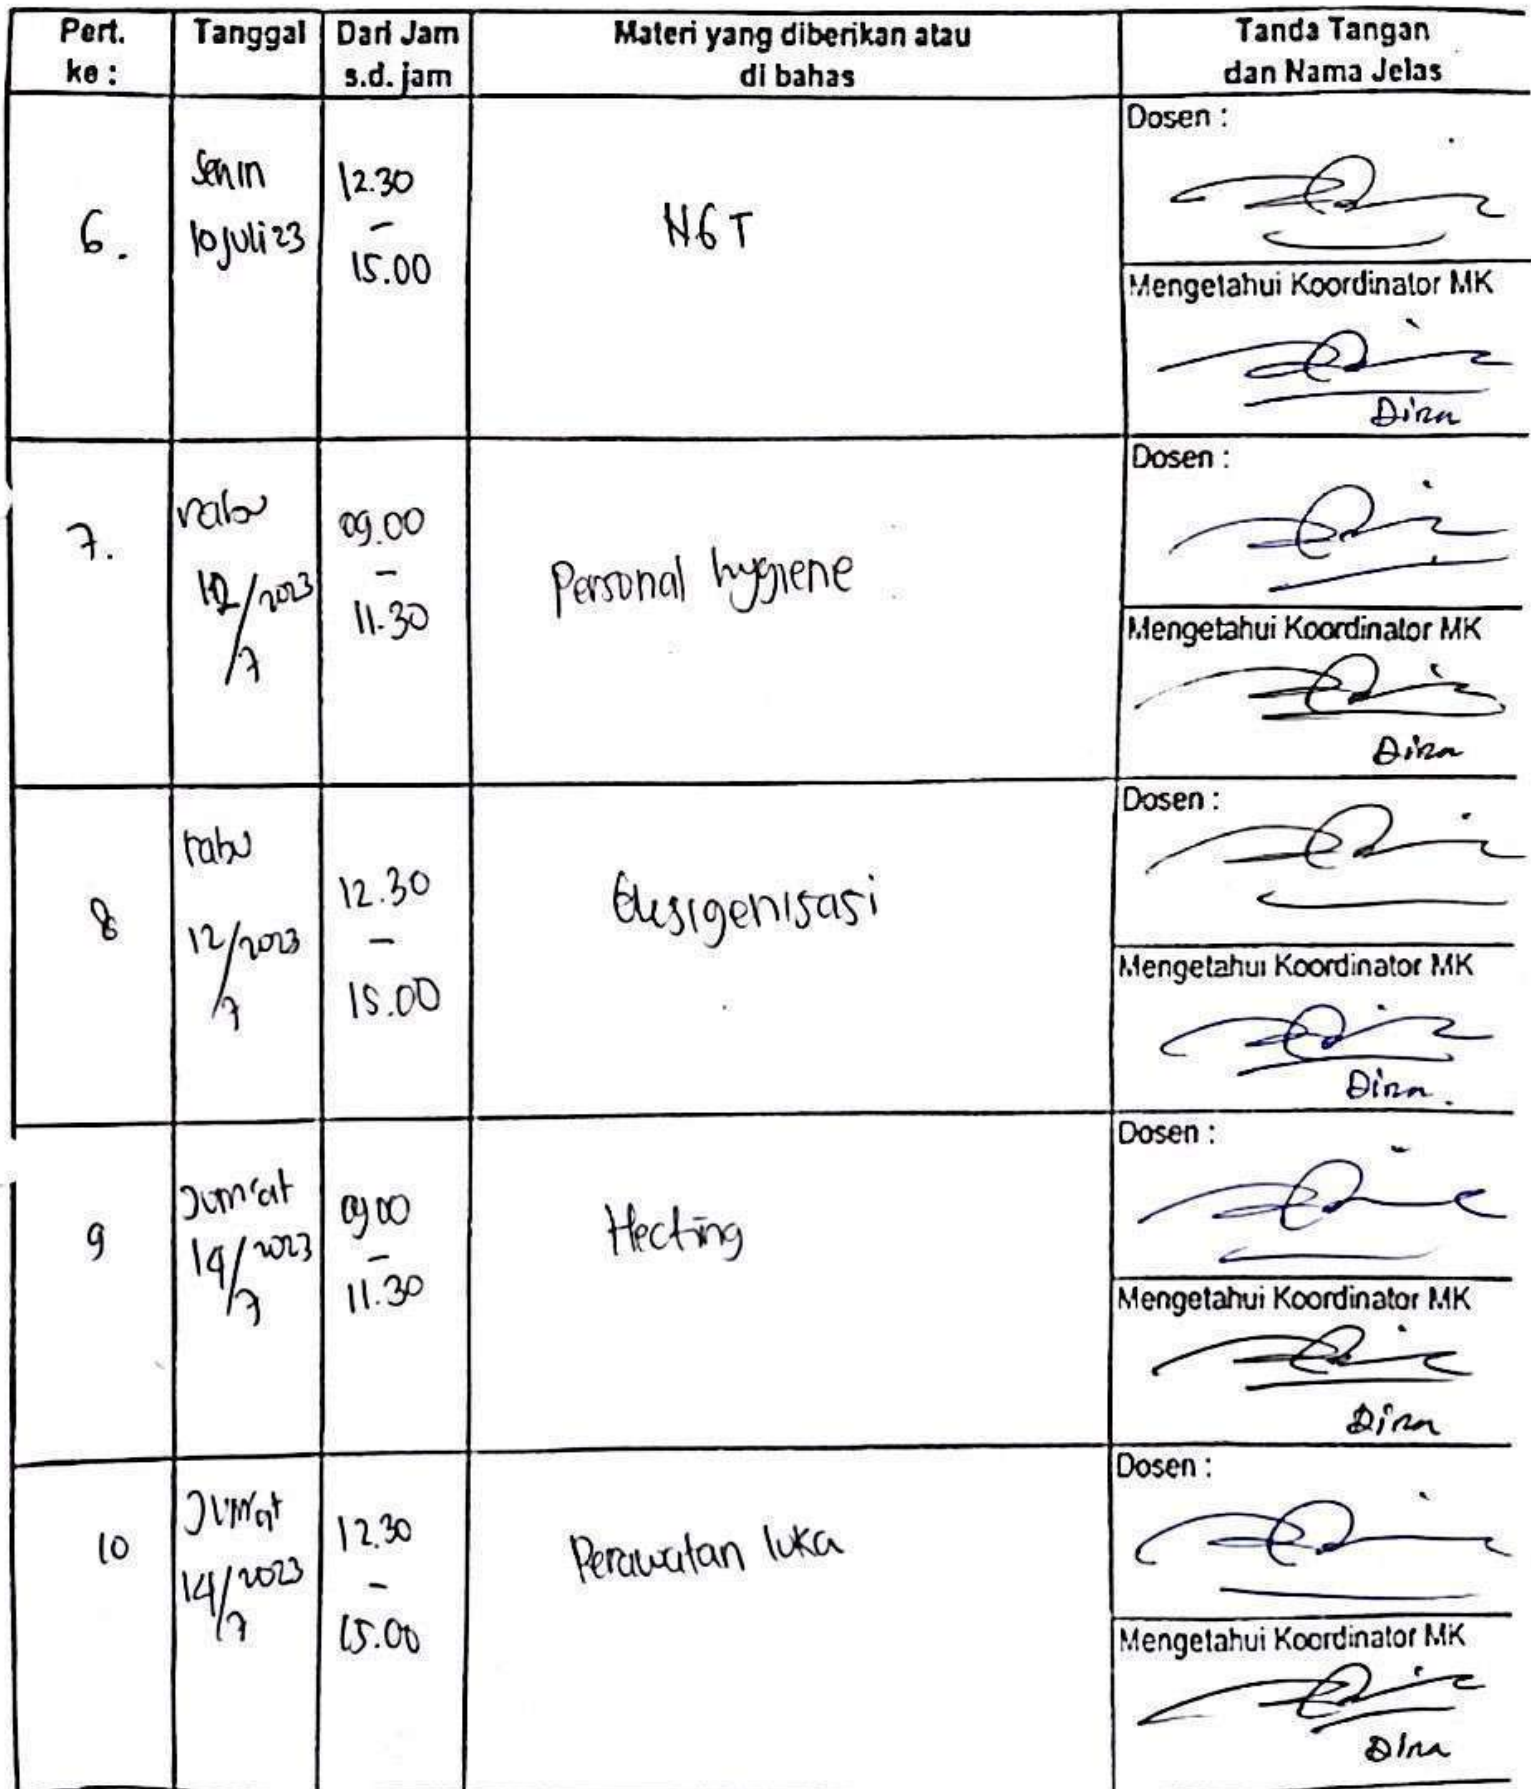 Pert. ke :
Tanggal
Dari Jam s.d. jam
Materi yang diberikan atau di bahas
Tanda Tangan dan Nama Jelas
6.
Senin
10 juli 23
12.30
-
15.00
NGT
Dosen :
Mengetahui Koordinator MK
Dina
7.
rabu
12/2023
/7
09.00
-
11.30
Personal hygiene
Dosen :
Mengetahui Koordinator MK
Dina
8
rabu
12/2023
/7
12.30
-
15.00
Dosen :
Mengetahui Koordinator MK
Dina.
9
Jum'at
14/2023
/7
09.00
-
11.30
Hecting
Dosen :
Mengetahui Koordinator MK
Dina
10
Jum'at
14/2023
/7
12.30
-
15.00
Perawatan luka
Dosen :
Mengetahui Koordinator MK
Dina